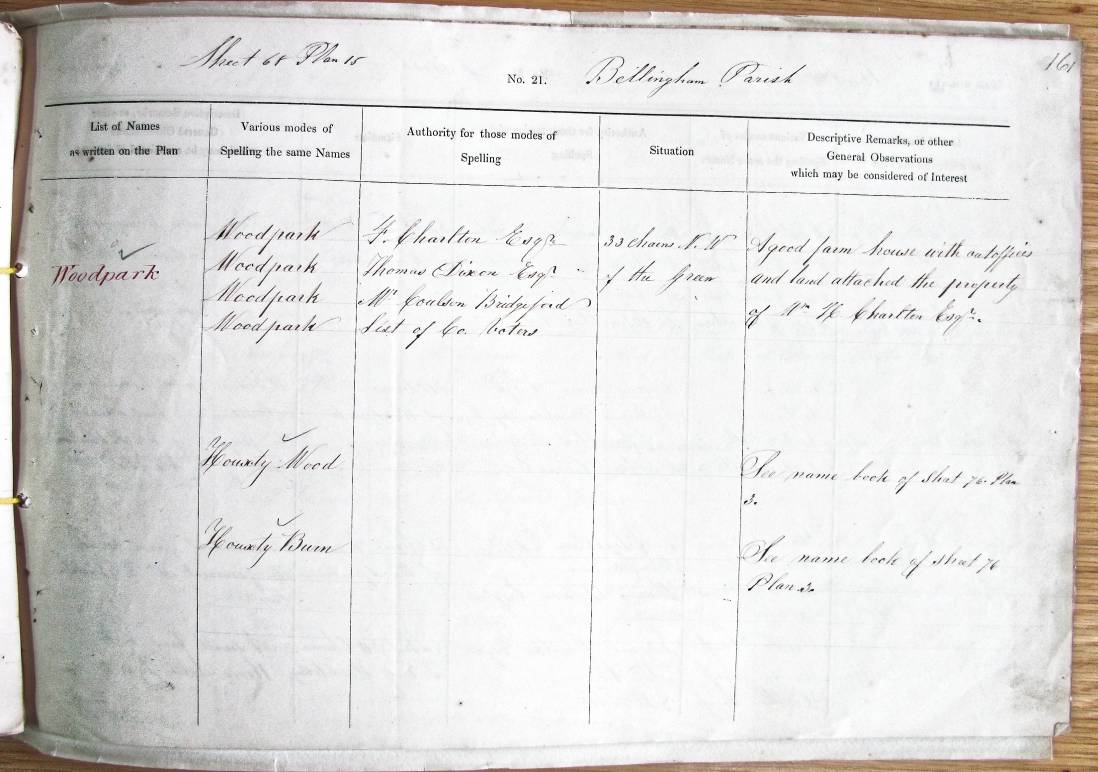 Sheet 68 Plan 15
161
No. 21.
Bellingham Parish
List of Names
as written on the Plan
Various modes of
Spelling the same Names
Authority for those modes of
Spelling
Situation
Descriptive Remarks, or other
General Observations
which may be considered of Interest
Woodpark
Woodpark
Woodpark
Woodpark
Woodpark
F. Charlton Esqr.
Thomas Dixon Esqr.
Mr Coulson Bridgeford
List of Co. Voters
33 chains N.W
of the Green
A good farm house with outoffices
and land attached the property
of Wm H Charlton Esqr.
Houxty Wood
See name book of Sheet 76. Plan
3.
Houxty Burn
See name book of Sheet 76
Plan 3.